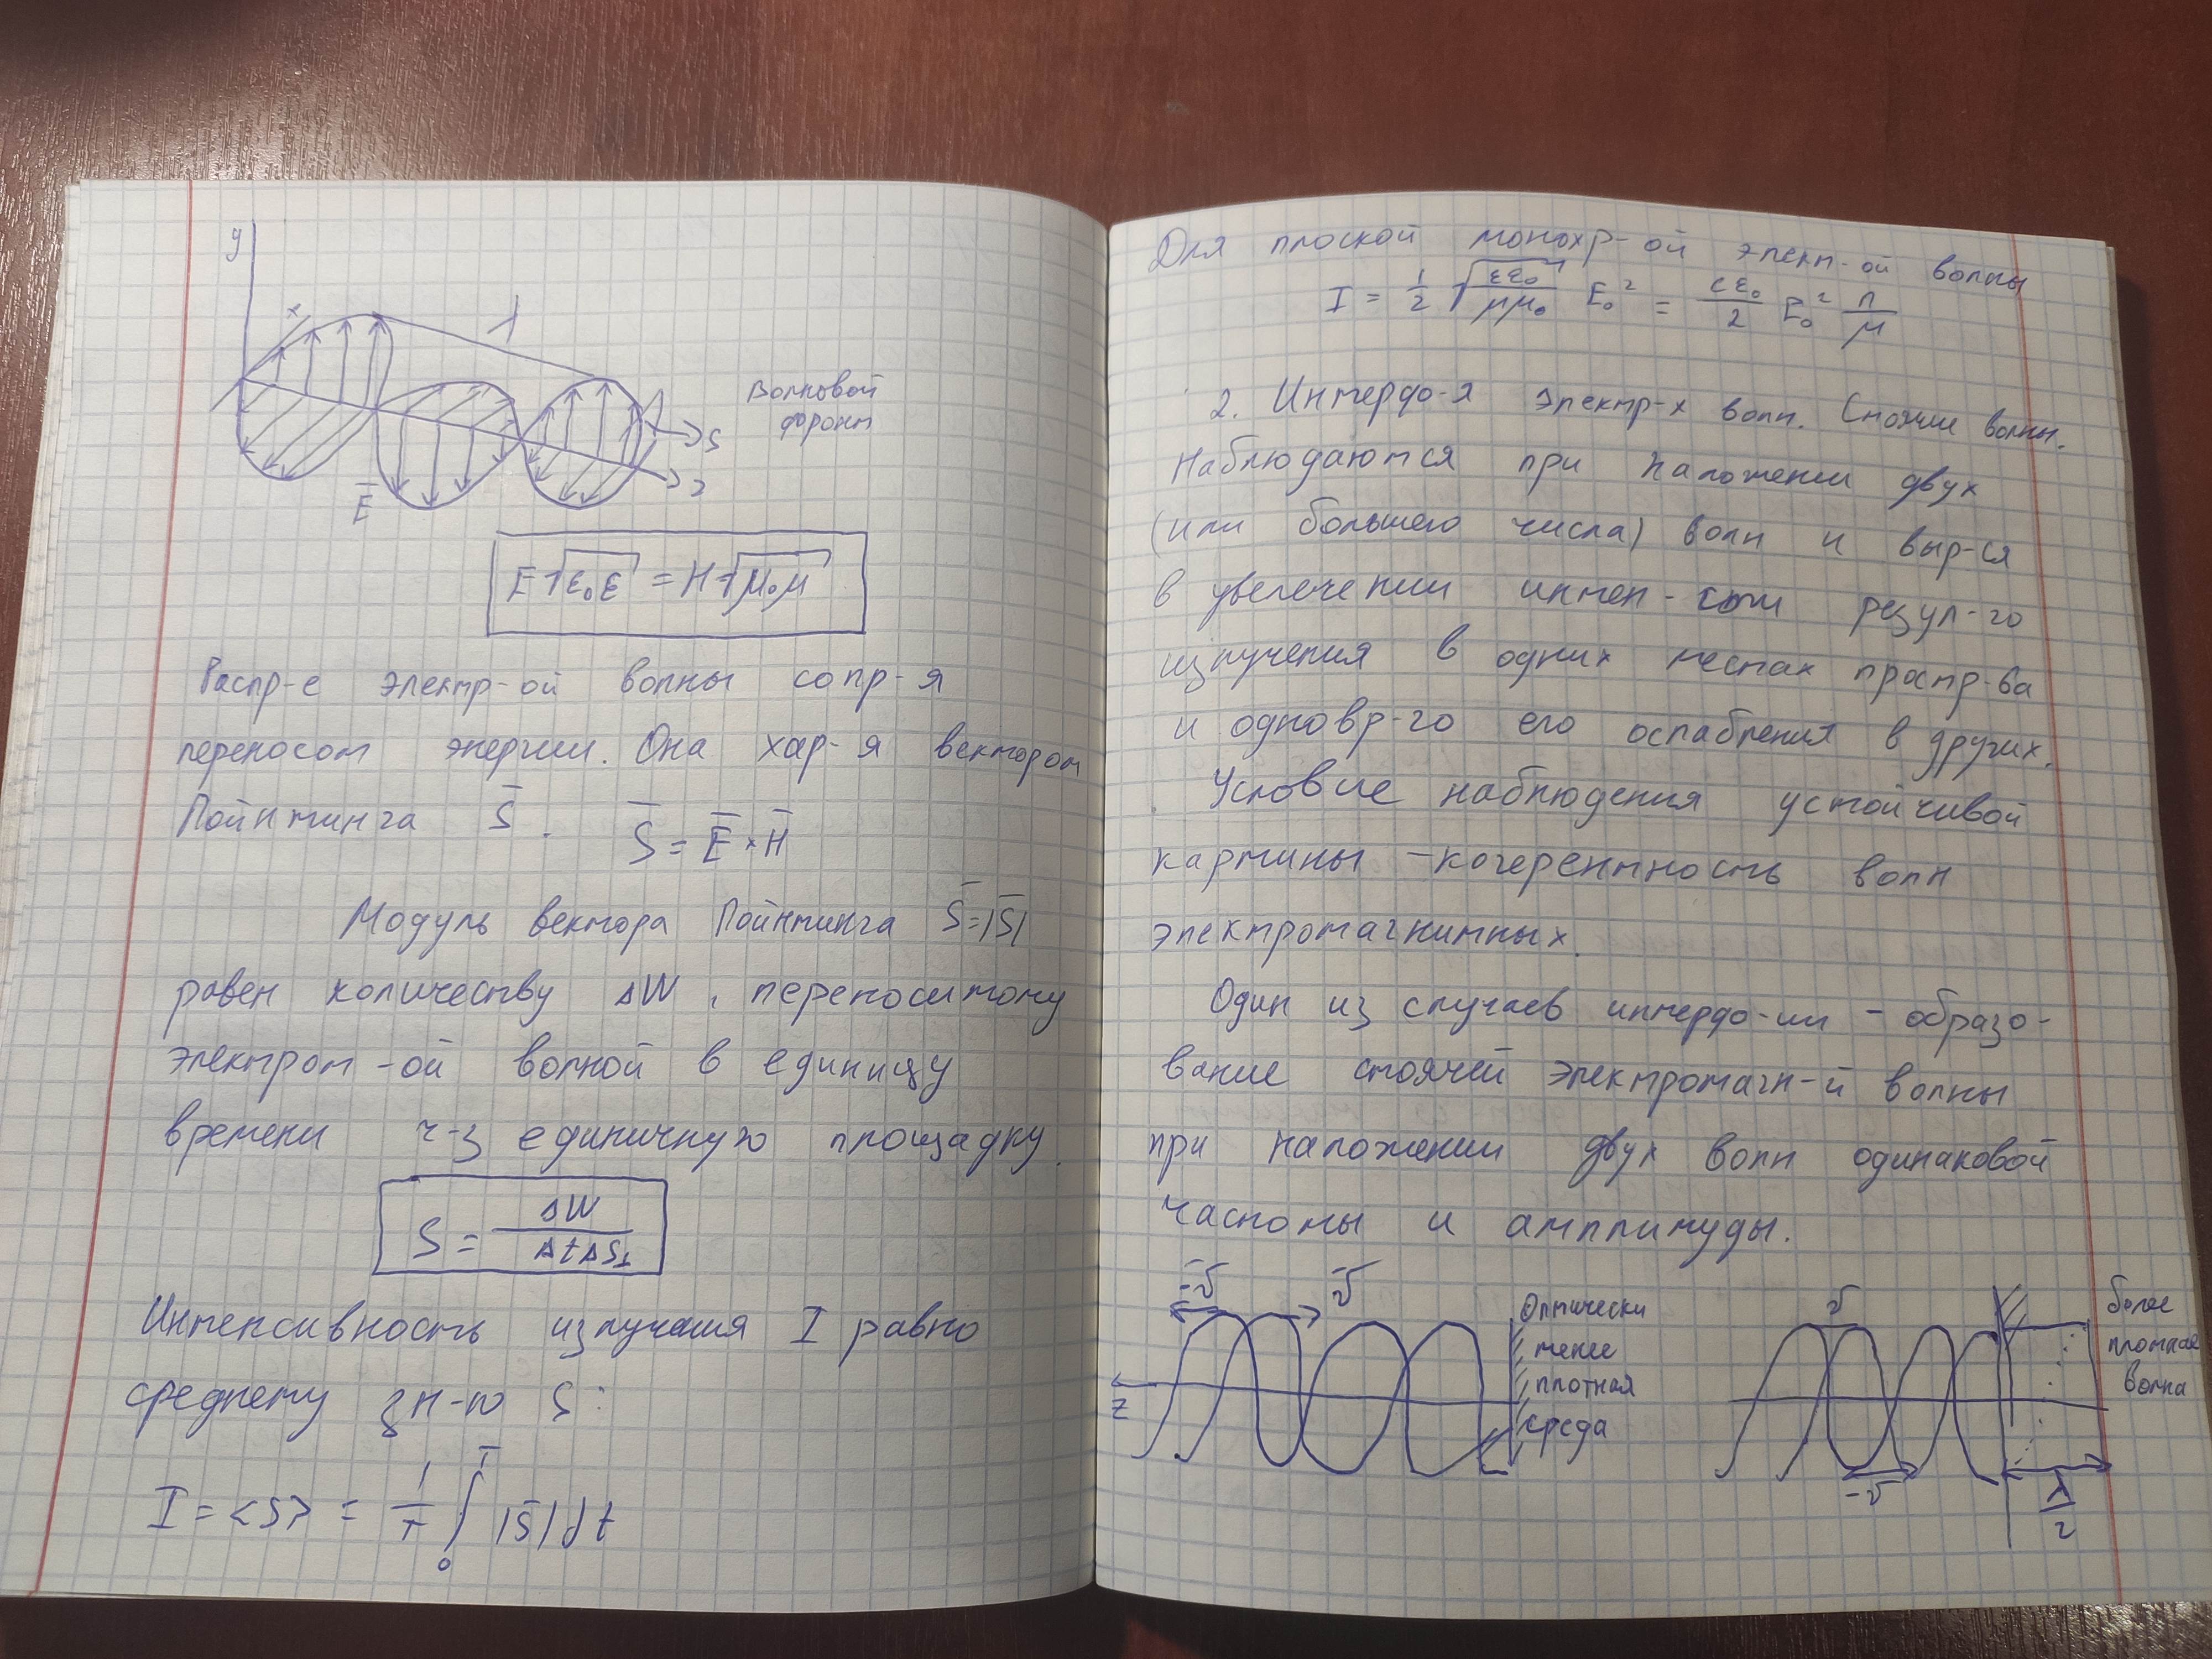 y
x
λ
Волновой
фронт
S
z
E̅
E√ε₀ε = H√μ₀μ
Распр-е электр-ой волны сопр-я
переносом энергии. Она хар-я вектором
Пойнтинга S̅. S̅ = E̅ × H̅
Модуль вектора Пойнтинга S̅=|S̅|
равен количеству ΔW, переносимому
электром-ой волной в единицу
времени ч-з единичную площадку.
S = ΔW / ΔtΔS⊥
Интенсивность излучения I равно
среднему зн-ю S:
I = <S> = 1/T ∫₀ᵀ |S̅|dt
Для плоской монохр-ой элект-ой волны
I = 1/2 √(εε₀/μμ₀) E₀² = cε₀/2 E₀² n/μ
2. Интерфо-я электр-х волн. Стоячие волны.
Наблюдаются при наложении двух
(или большего числа) волн и выр-ся
в увелечении интен-сти резул-го
излучения в одних местах простр-ва
и одновр-го его ослабления в других.
Условие наблюдения устойчивой
картины - когерентность волн
электромагнитных.
Один из случаев интерфо-ии - образо-
вание стоячей электромагн-й волны
при наложении двух волн одинаковой
частоты и амплитуды.
-v̅ v̅
Оптически
менее
плотная
среда
z
v
-v
более
плотная
волна
λ/2